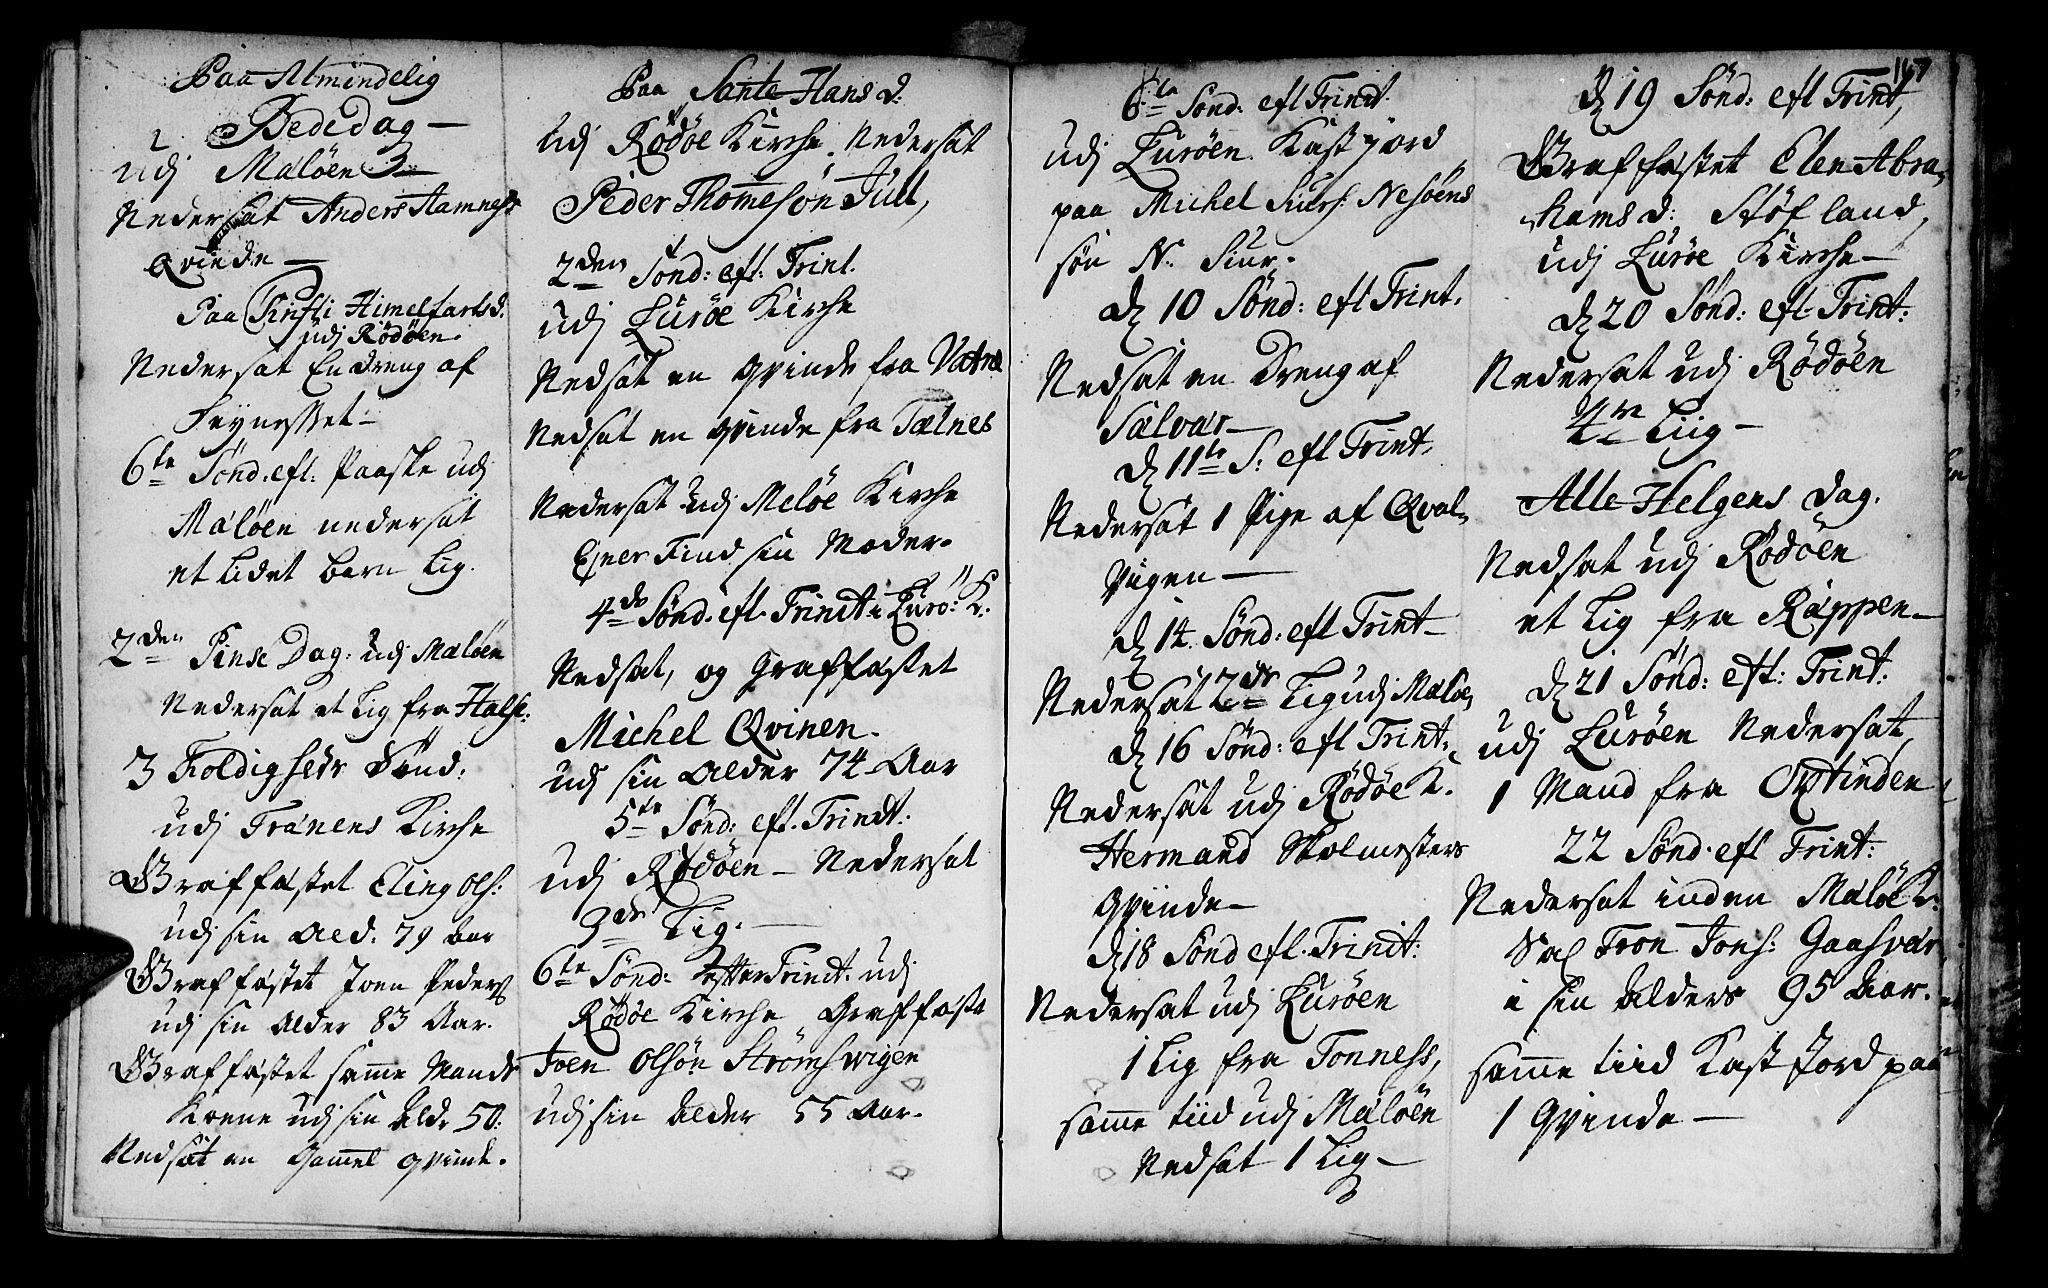 Paa Almindelig
Bededag —
udj Maløen
Nedersat Anders Hamness
Qvinde —
Paa Christi Himelfarts d.
udj Rødøen.
Nedersat En dreng af
6te Sønd. eft: Paaske udj
Maløen nedersat
et lidet barn lig.
2den Pinse Dag: udj Maløen
Nedersat et Lig fra Halse:
3 Foldigheds Sønd:
udj Trænens Kirche
Graffæstet Eling Ols:
udj sin Ald: 79 aar
Graffæstet Joen Peders
udj sin Alder 83 Aar.
Graffæstet same Mands
Koene udj sin Ald. 50.
Nedsat en Gamel qvinde.
Paa Sante Hans d:
Udj Rødøe Kirche. Nedersat
Peder Thomesøn Juul,
2den Sønd: eft: Trint.
udj Lurøe Kirche
Nedsat en qvinde fra Vatne
Nedsat en qvinde fra Tælnes
Nedersat udj Meløe Kirche
Ejner Find sin Moder.
4de Sønd. eft. Trindt i Lurø: K.
Nedsat, og Graffæstet
Michel Qvinen.
udj sin Alder 74 Aar
5te Sønd: eft. Trindt:
udj Rødøen — Nedersat
3de Lig. —
6te Sønd: efter Trindt: udj
Rødøe Kirche Graffæste
Joen Olsøn Strømswigen
udj sin Alder 55 Aar.
6te Sønd: eft Trindt.
udj Lurøen Kast jord
paa Michel Siurs: Nesøens
søn N. Siur.
D 10 Sønd: eft Trint.
Nedsat en Dreng af
Sælvær —
D 11te S: eft Trint.
Nedersat 1 Pige af Qval-
vigen —
D 14 Sønd: eft Trint —
Nedersat 2de Lig udj Maløe,
D 16 Sønd: eft Trint:
Nedersat udj Rødøe K.
Hermand Skolmesters
Qvinde —
D 18 Sønd eft. Trinit:
Nedersat udj Lurøen
1 Lig fra Tonness,
same tiid udj Maløen
Nedsat 1 Lig —
147
D 19 Sønd: eft Trint,
Graffæstet Elen Abra-
hams d: Støfland,
udj Lurøe Kirche —
D 20 Sønd: eft Trint:
Nedersat udj Rødøen
4re Liig —
Alle Helgens Dag.
Nedsat udj Rødøen
et Lig fra Ræppen —
D 21 Sønd: eft: Trint:
udj Lurøen Nedersat,
1 Mand fra Oxtinden
22 Sønd. eft Trint:
Nedersat inden Maløe K:
Sal Tron Jons: Gaasvær
i sin Alders 95 Aar.
same tiid Kast Jord paa
1 Qvinde —